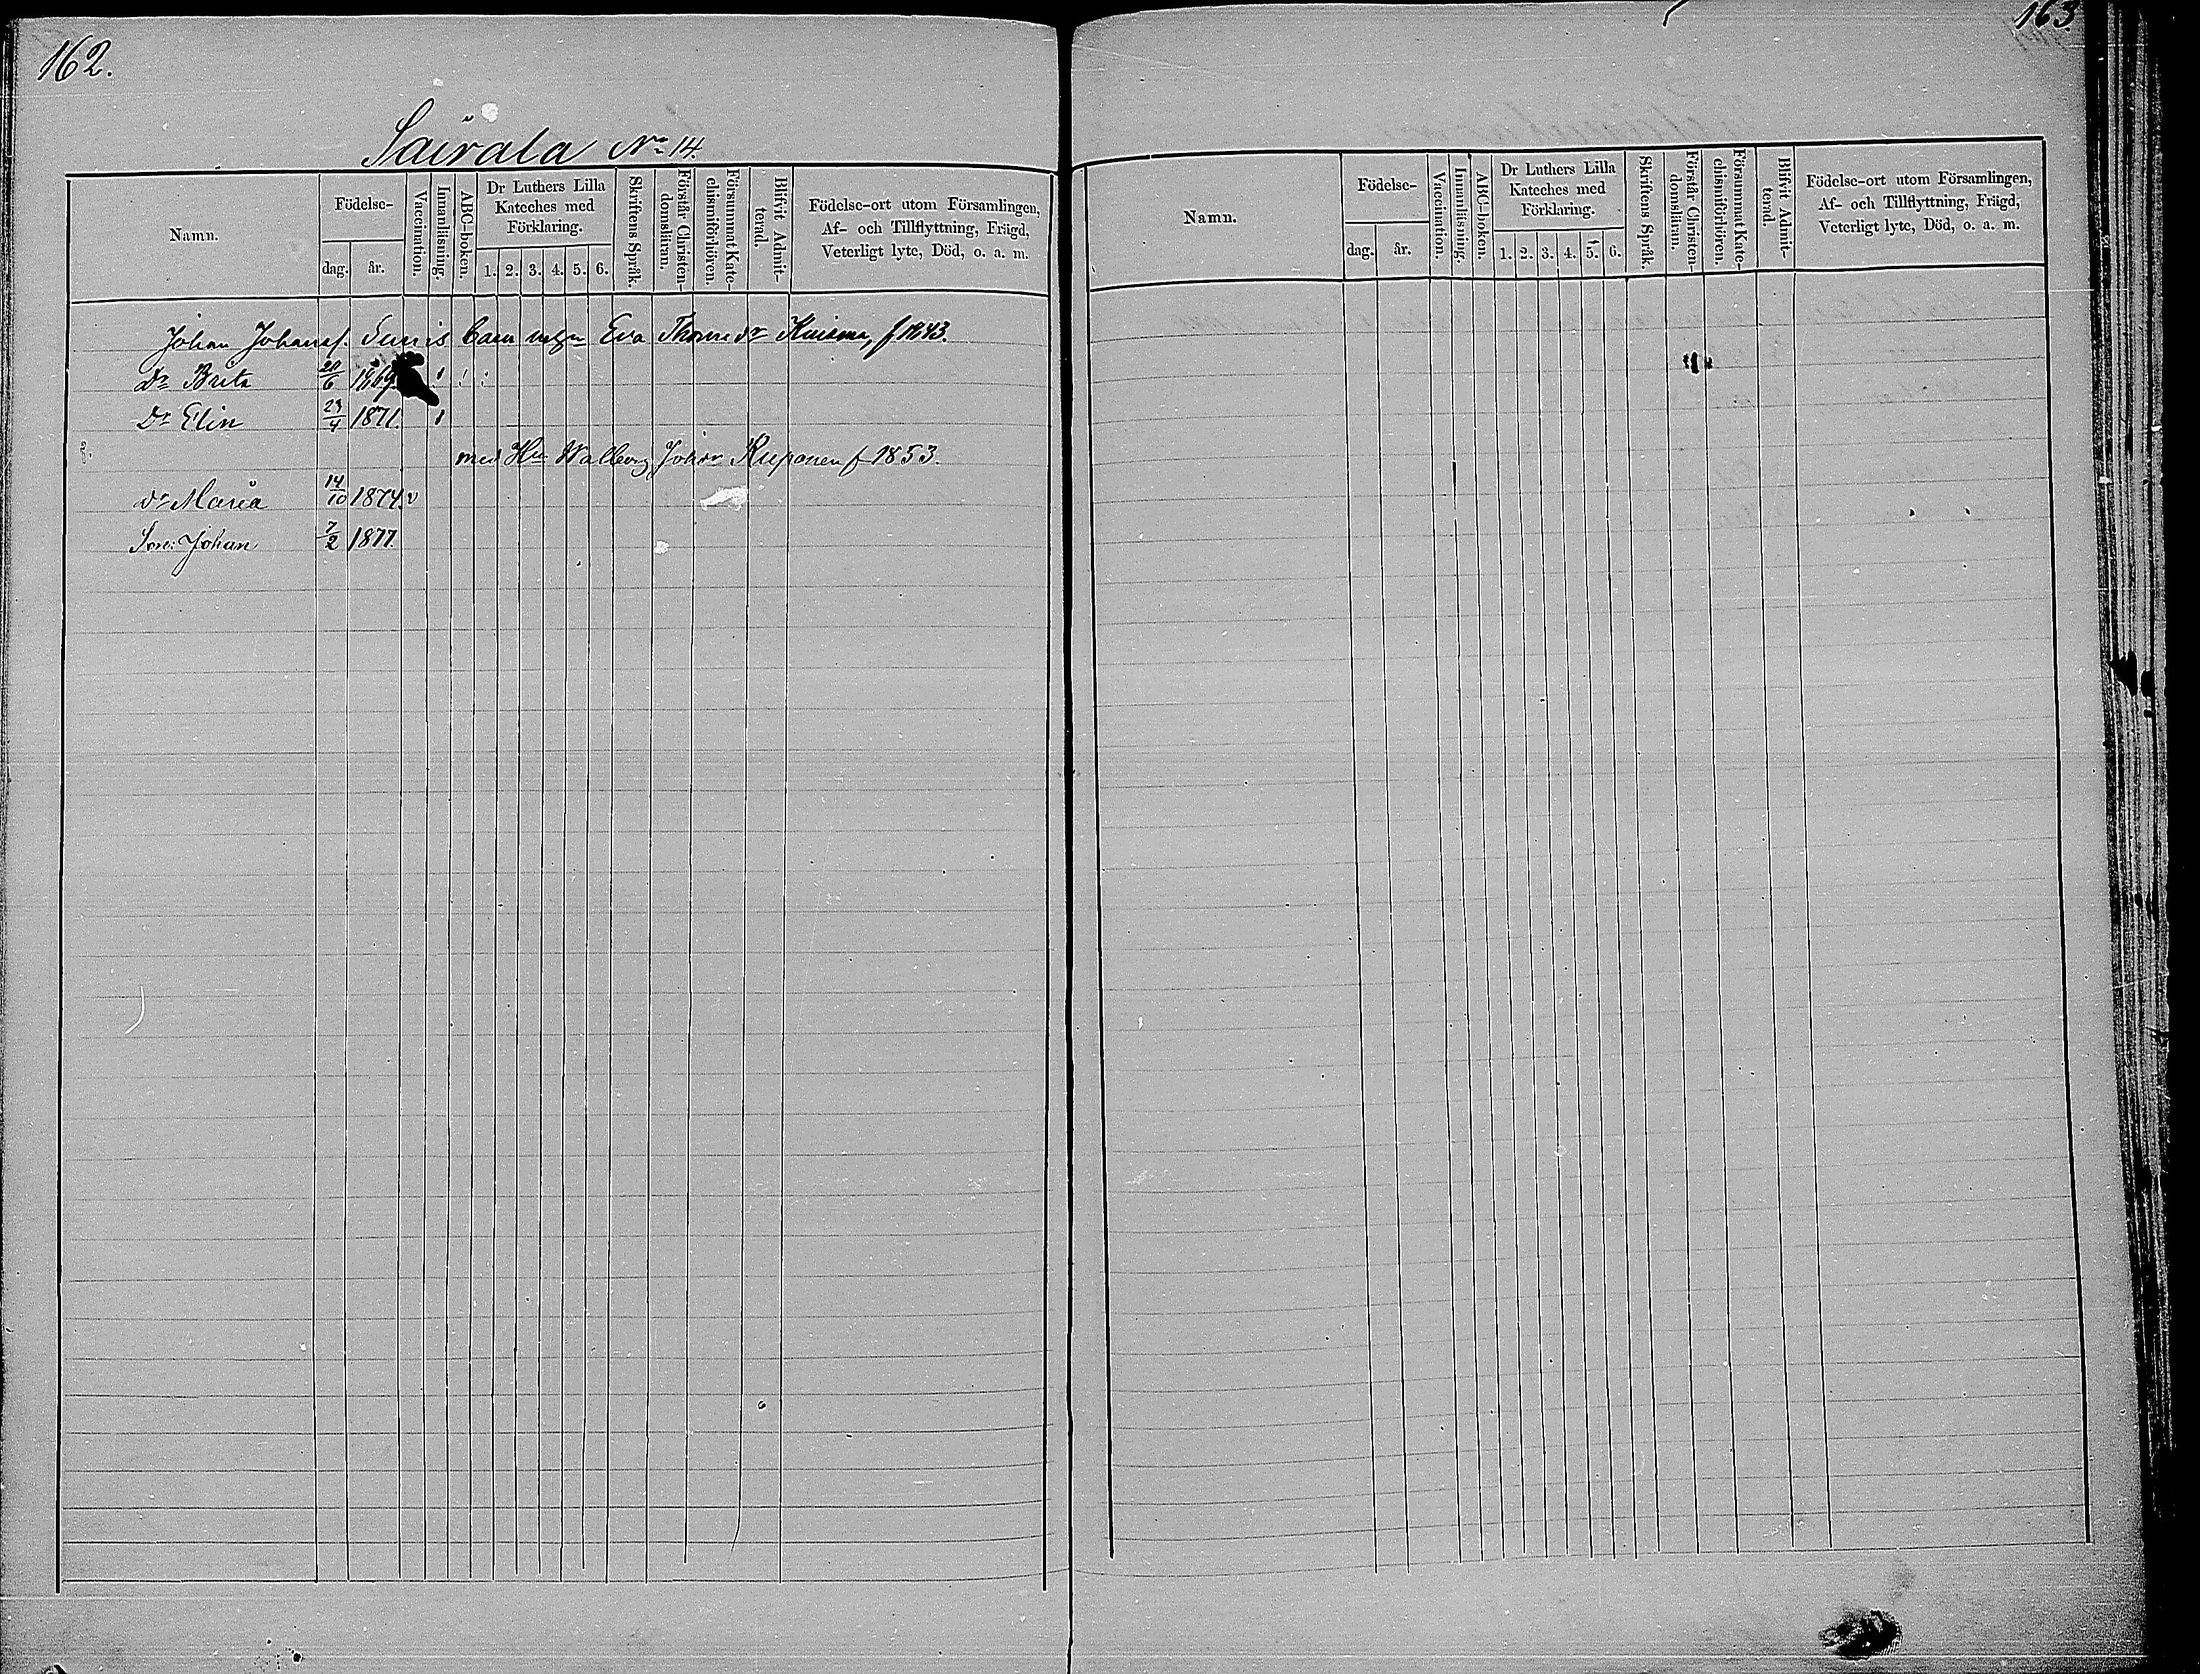 162.
Sairala No 14.
Namn.
Födelse-
dag. år.
Vaccination.
Innanläsning.
ABC-boken.
Dr Luthers Lilla
Kateches med
Förklaring.
1. 2. 3. 4. 5. 6.
Skriftens Språk.
Förstår Christen-
domsläran.
Försummat Kate-
chismiförhören.
Blifvit Admit-
terad.
Födelse-ort utom Församlingen,
Af- och Tillflyttning, Frägd,
Veterligt lyte, Död, o. a. m.
Johan Johanss. Sunis barn Eva Thomsdr f 1843.
Dr Brita 20/6 1869.
Dr Elin 23/4 1871.
med Hu Walborg Johsdr Kuponen f 1853.
dr Maria 14/10 1874. v
Son: Johan 7/2 1877.
163.
Namn.
Födelse-
dag. år.
Vaccination.
Innanläsning.
ABC-boken.
Dr Luthers Lilla
Kateches med
Förklaring.
1. 2. 3. 4. 5. 6.
Skriftens Språk.
Förstår Christen-
domsläran.
Försummat Kate-
chismiförhören.
Blifvit Admit-
terad.
Födelse-ort utom Församlingen,
Af- och Tillflyttning, Frägd,
Veterligt lyte, Död, o. a. m.